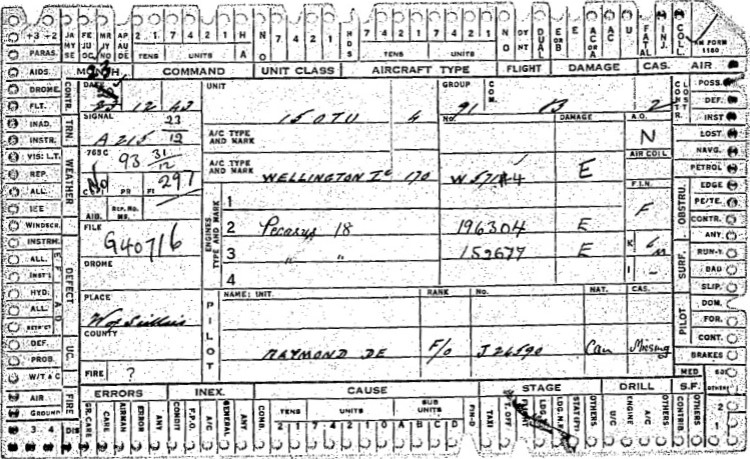 +3 -2 JA MY SE FE JU OC MR JY NO AP AU DE 2 1 7 4 2 1 H A NO HDS 7 4 2 1 7 4 2 1 NO DY NT DUAL E or B E AC or A AC U FATAL INJ. COLL.
PARAS. TENS UNITS TENS UNITS RM FORM 1180
AIDS MONTH COMMAND UNIT CLASS AIRCRAFT TYPE FLIGHT DAMAGE CAS. AIR
DROME. CONTR. DATE UNIT GROUP COM. CONTR. LOST POSS.
FLT. 23 12 43 15 OTU 6 91 B 2 DEF.
INAD. TRN. SIGNAL 23 No. DAMAGE A.O. INST
INSTR. A 215 12 A/C TYPE AND MARK N LOST.
VIS: L.T. 765C 93 31 12 NAVG.
REP. WEATHER No 297 A/C TYPE AND MARK AIR COIL PETROL
ALL. COPY PR FI WELLINGTON Ic 170 W 5714 E F.I.N. OBSTRU. EDGE
ICE AIB. REP. No. ENGINES TYPE AND MARK 1 F PE/TE.
WINDSCR. FILE 2 Pegasus 18 196304 E CONTR.
INSTRM. G40716 3 " " 159677 E K 6 m ANY.
ALL. DROME 4 I – SURF. RUN-Y.
INST'L DEFECT BAD
HYD. PLACE PILOT NAME: UNIT. RANK No. NAT. CAS. SLIP.
ALL. W of Scillies DOM.
RETR'CT COUNTY PILOT FOR.
DEF. UC. RAYMOND DE F/O J 26590 Can Missing CONT.
PROB. FIRE ? BRAKES
W/T & C ERRORS INEX. CAUSE STAGE DRILL S.F. MED
AIR FIRE GR. CARE CARE AIRMAN ERROR ANY CONDIT F.P.O. A/C GENERAL ANY COMB. TENS UNITS SUB UNITS FIR-D TAXI T. OFF FLIGHT STAT(FT) OTHERS U/C ENGINE A/C OTHERS CONTRIB OTHERS 2
GROUND 2 1 7 4 2 1 0 A B C D 1
3 4 DIS